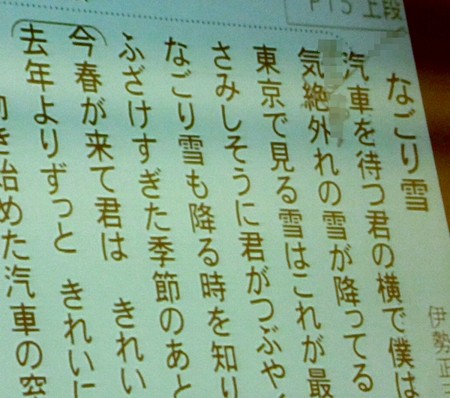 P15 上段
なごり雪
伊勢正
汽車を待つ君の横で僕は
気絶外れの雪が降ってる
東京で見る雪はこれが最
さみしそうに君がつぶや
なごり雪も降る時を知り
ふざけすぎた季節のあと
今春が来て君は きれい
去年よりずっと きれいに
き始めた汽車の